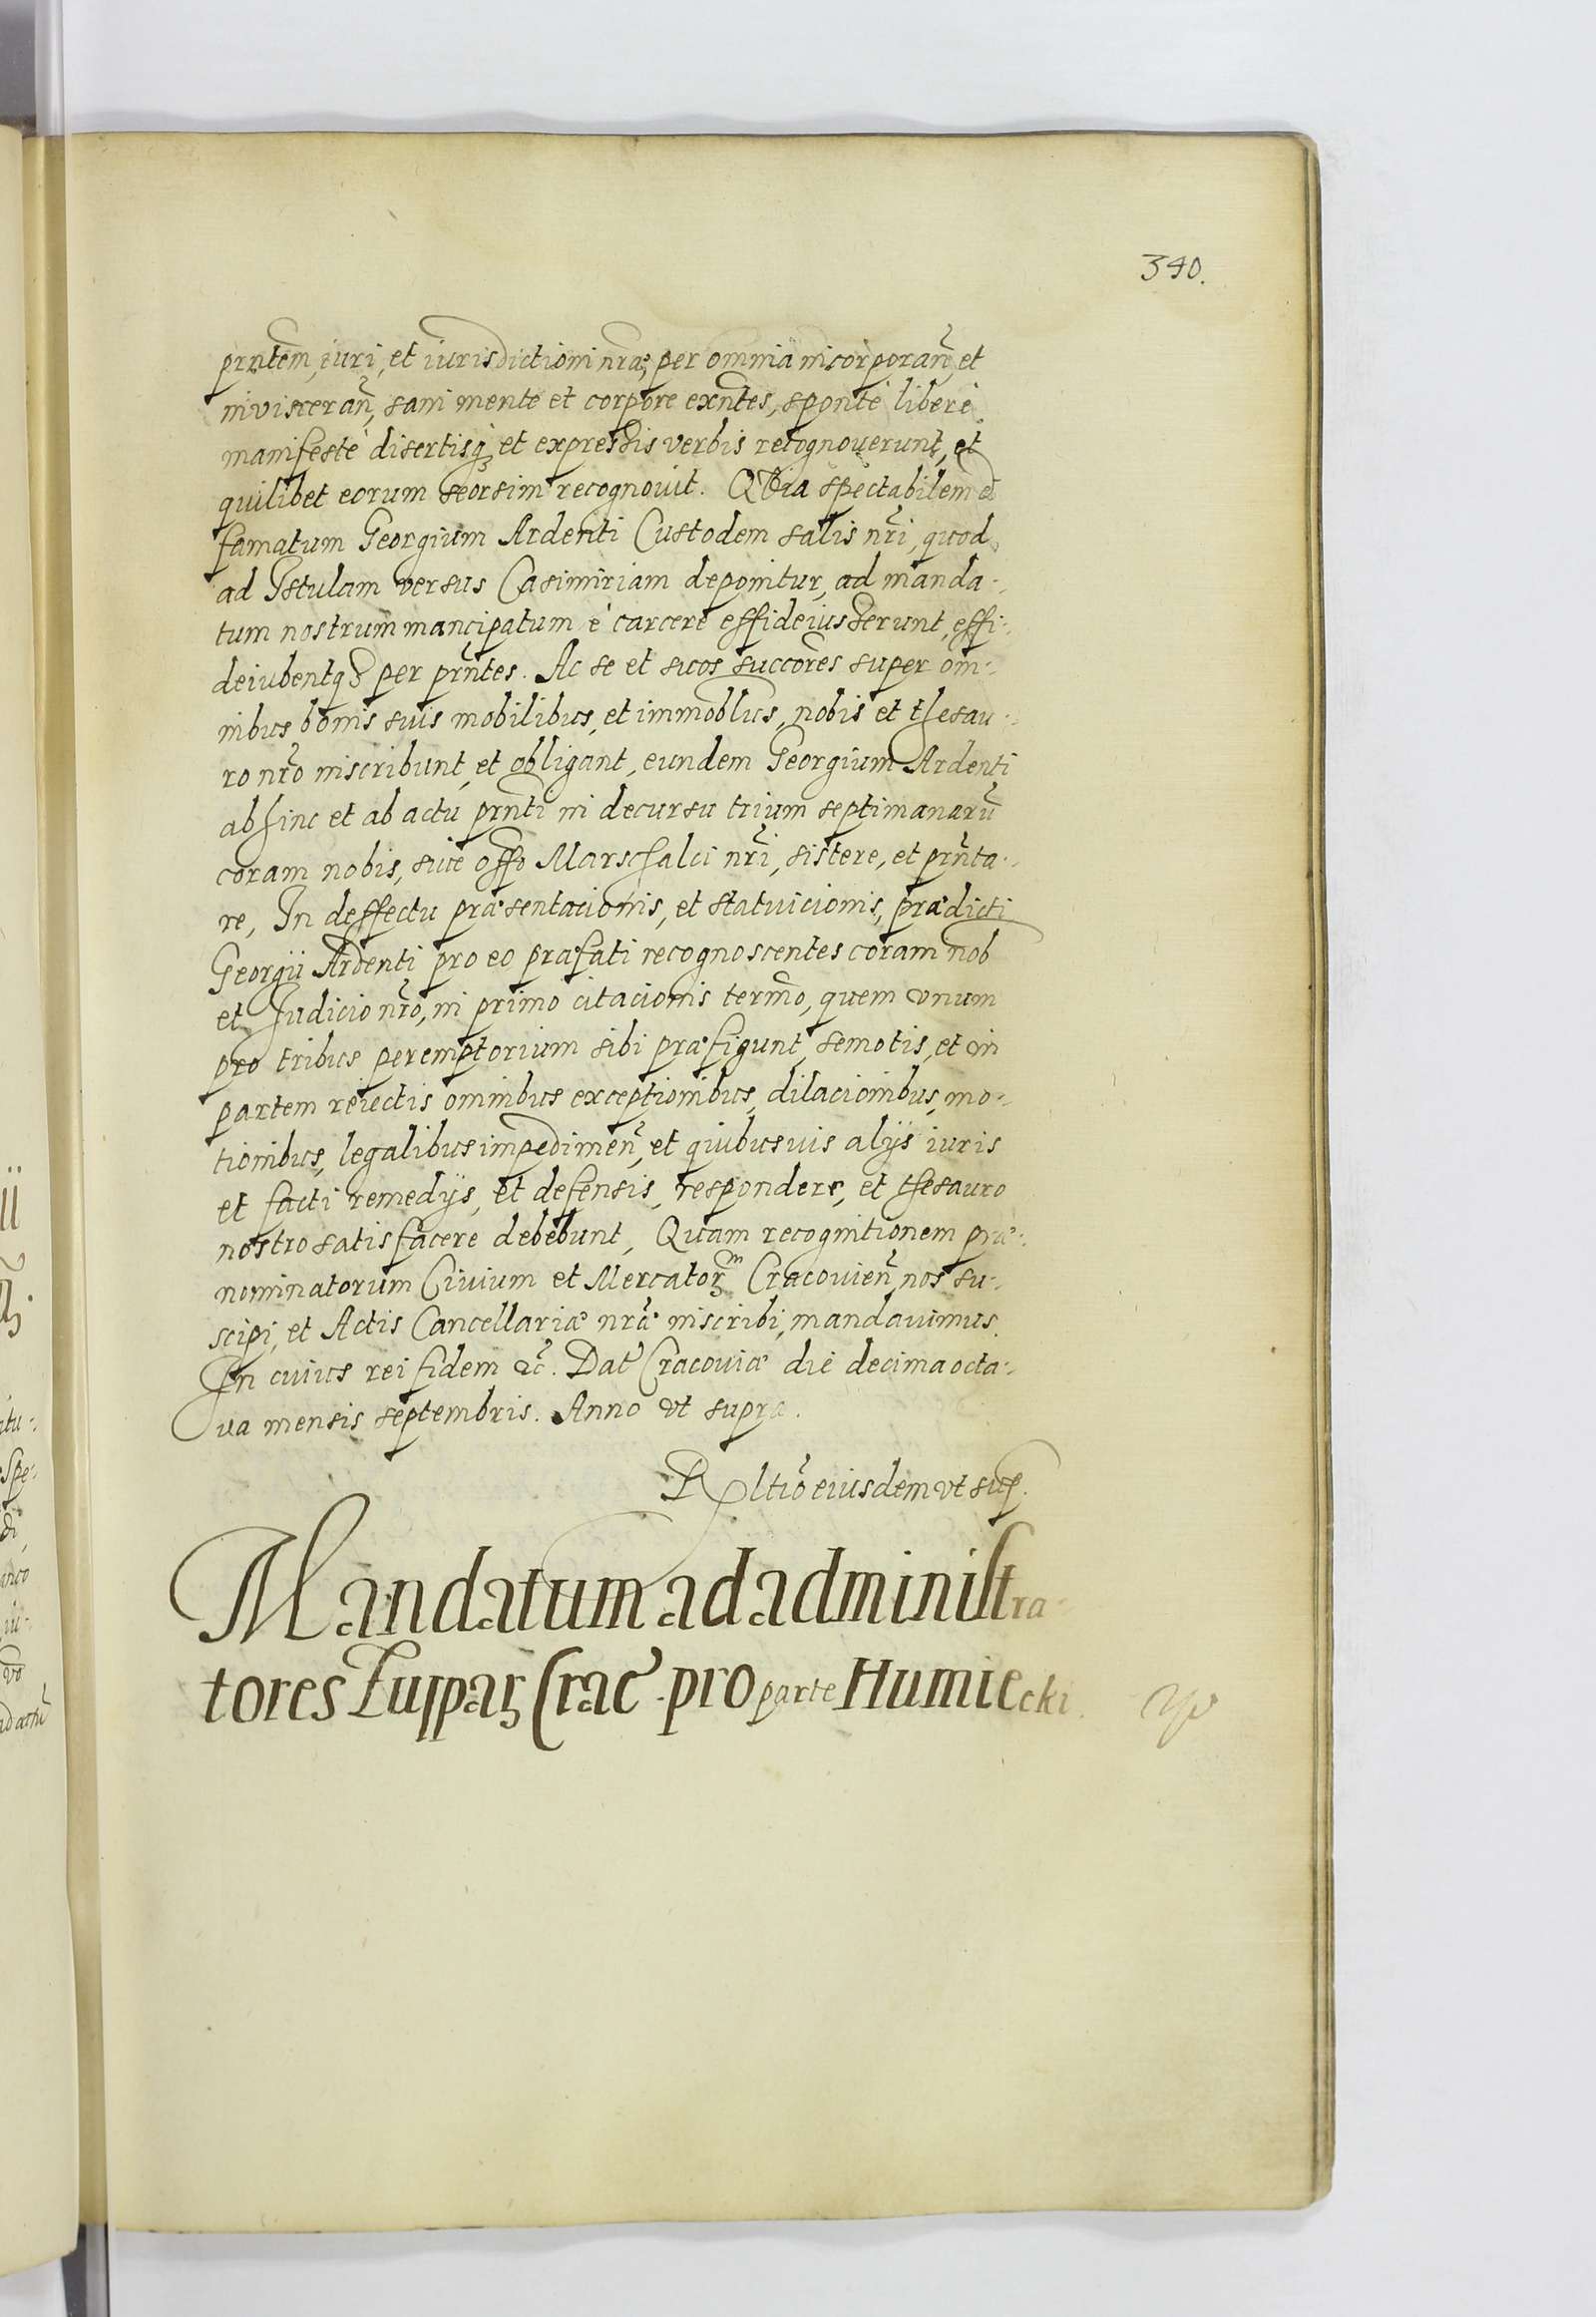 340.
prntem, iuri, et iurisdictioni nrae, per omnia incorporan̄, et
invisceran̄, sani mente et corpore exn̄tes, sponte libere
manifeste disertisq̨ et expressis verbis recognouerunt, et
quilibet eorum seorsim recognouit. Quia spectabilem et
famatum Georgium Ardenti Custodem salis nr̄i, quod
ad Istulam versus Casimiriam deponitur, ad manda-
tum nostrum mancipatum è carcere effideiusserunt, effi-
deiubentq̨ per prn̄tes. Ac se et suos succōres super om-
nibus bonis suis mobilibus, et immobl̄us, nobis et thesau-
ro nrō inscribunt, et obligant, eundem Georgium Ardenti
abhinc et ab actu prn̄ti in decursu trium septimanarū
coram nobis, siue offō Marschalci nr̄i, sistere, et prn̄ta-
re, In deffectu præsentacionis, et statuicionis, prædicti
Georgii Ardenti pro eo præfati recognoscentes coram nob
et Iudicio nrō, in primo citacionis termō, quem vnum
pro tribus peremptorium sibi præfigunt, semotis, et in
partem reiectis omnibus exceptionibus, dilacionibus, mo-
tionibus, legalibus impedimen̄, et quibusuis alijs iuris
et facti remedijs, et defensis, respondere, et thesauro
nostro satisfacere debebunt, Quam recognitionem præ-
nominatorum Ciuium et Mercatorꝝ Cracouien̄ nos su-
scipi, et Actis Cancellariæ nræ inscribi, mandauimus.
In cuius rei fidem &c. Dat Cracouiæ die decima octa-
va mensis septembris. Anno vt supra.
Rltiō eiusdem vt sup.
Mandatum ad administra-
tores Zuppaꝝ Crac pro parte Humiecki.